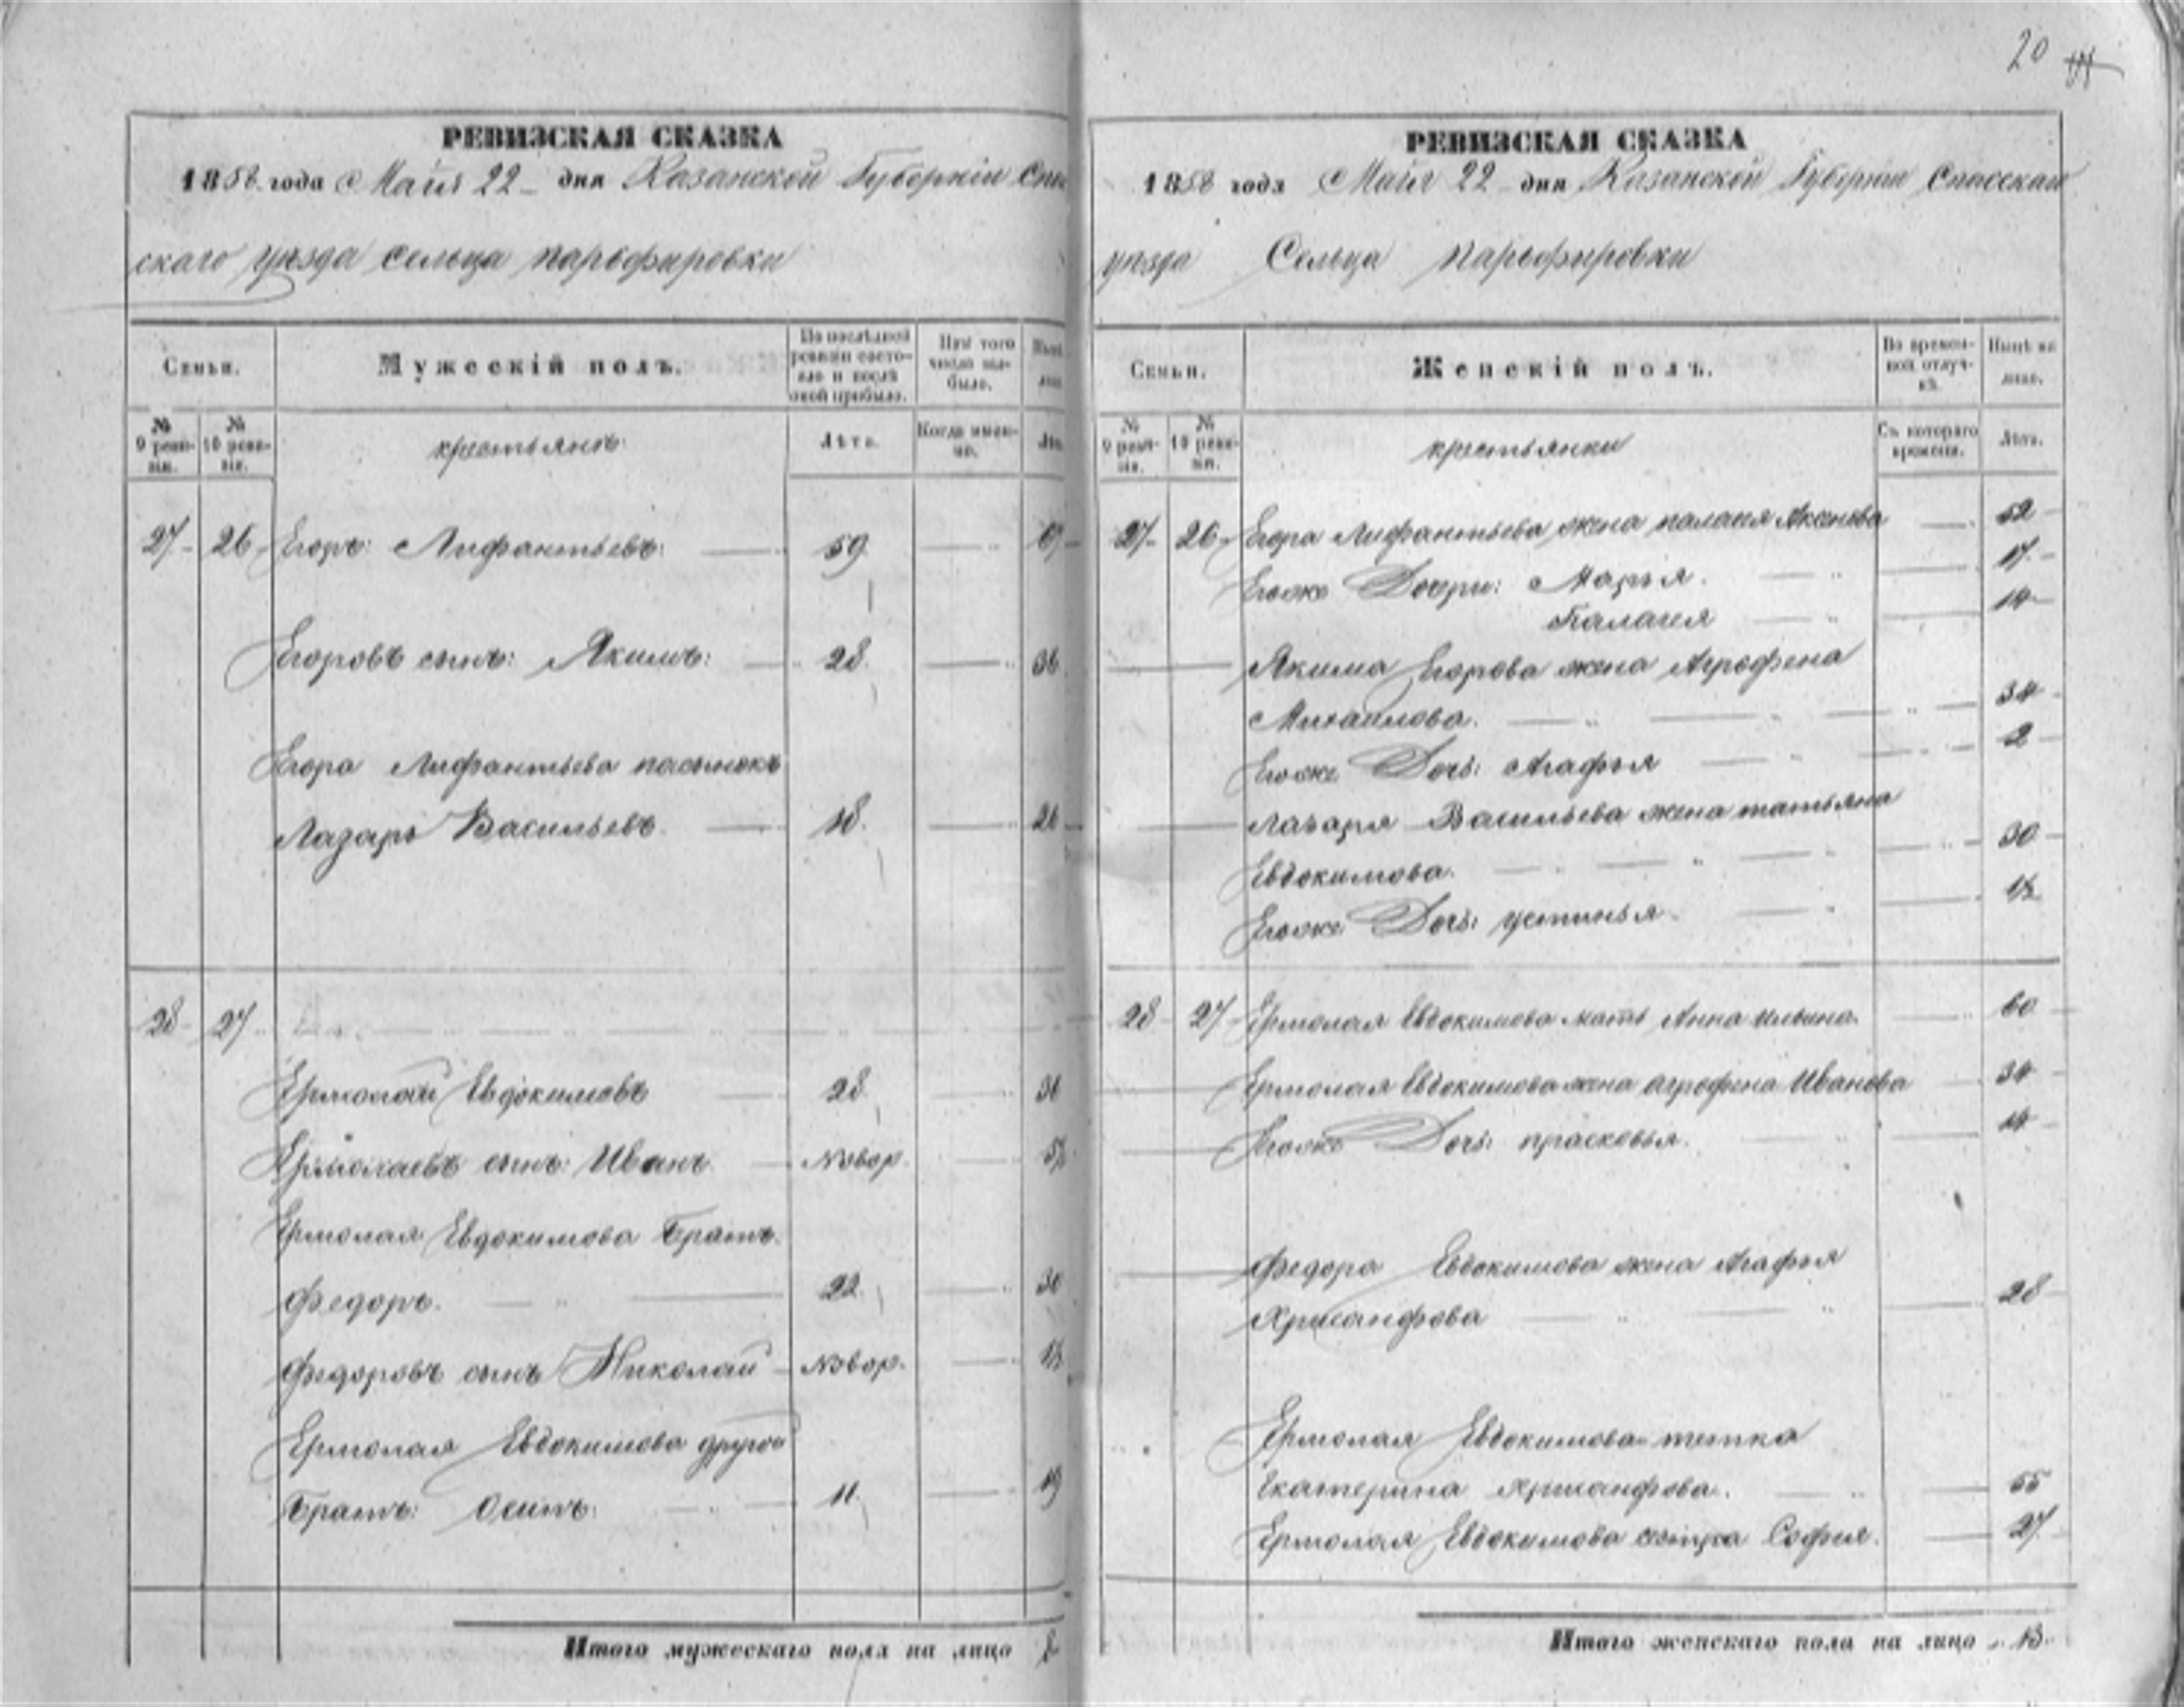 20
РЕВИЗСКАЯ СКАЗКА
1858 года Маія 22 дня Казанской Губерніи Спас
скаго уѣзда сельца парьфировки
Семьи.
Мужескій полъ.
По послѣдней ревизіи состояло и послѣ оной прибыло.
Изъ того числа выбыло.
№ 9 ревизіи.
№ 10 ревизіи.
крестьянъ
Лѣта.
Когда именно.
27 26 Егоръ Лифантьевъ 59 67
Егоровъ сынъ: Якимъ: 28 36
Егора Лифантьева пасынокъ
Лазарь Васильевъ 18 26
28 27
Ермолай Евдокимовъ 28 36
Ермолаевъ сынъ: Иванъ Новор
Ермолая Евдокимова Братъ
Федоръ 22 30
Федоровъ сынъ Николай Новор.
Ермолая Евдокимова другой
Братъ: Осипъ 11 19
Итого мужескаго пола на лицо 8
РЕВИЗСКАЯ СКАЗКА
1858 года Маія 22 дня Казанской Губерніи Спасскаго
уѣзда Сельца Парьфировки
Семьи.
Женскій полъ.
Во временной отлучкѣ.
Нынѣ на лицо.
№ 9 ревизіи.
№ 10 ревизіи.
крестьянки
Съ котораго времени.
Лѣта.
27 26 Егора Лифантьева жена палагея Аксенова 52
Егоже Дочри: Марья 17
Палагея 14
Якима Егорова жена Агрофена
Михайлова 34
Егоже Дочь: Агафья 2
Лазаря Васильева жена татьяна
Евдокимова 30
Егоже Дочь: устинья
28 27 Ермолая Евдокимова мать Анна ильина 60
Ермолая Евдокимова жена агрофина Иванова 34
Егоже Дочь: прасковья 14
Федора Евдокимова жена Агафья
Хрисанфова 28
Ермолая Евдокимова тетка
Екатерина Хрисанфова 55
Ермолая Евдокимова сестра София 27
Итого женскаго пола на лицо 13